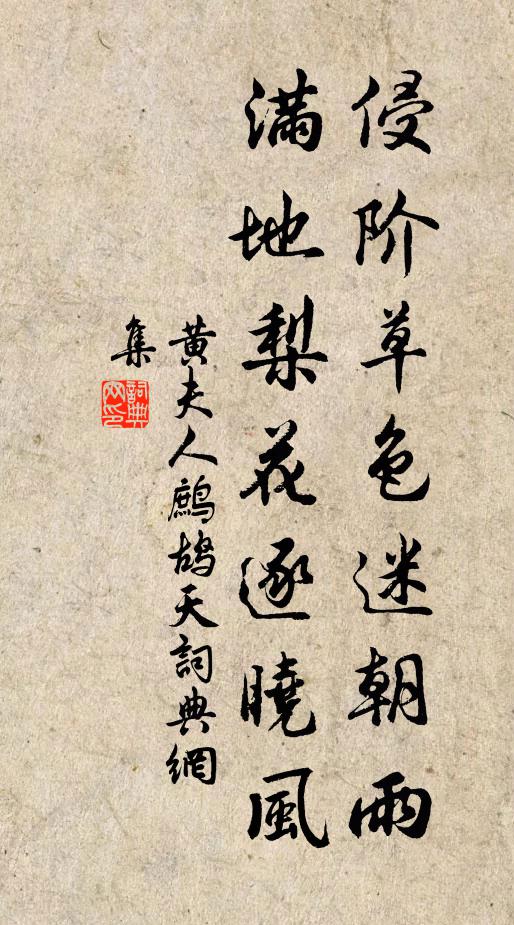 侵阶草色迷朝雨
满地梨花逐曉風
黄夫人鷓鸪天詞典網
集
詞典網印